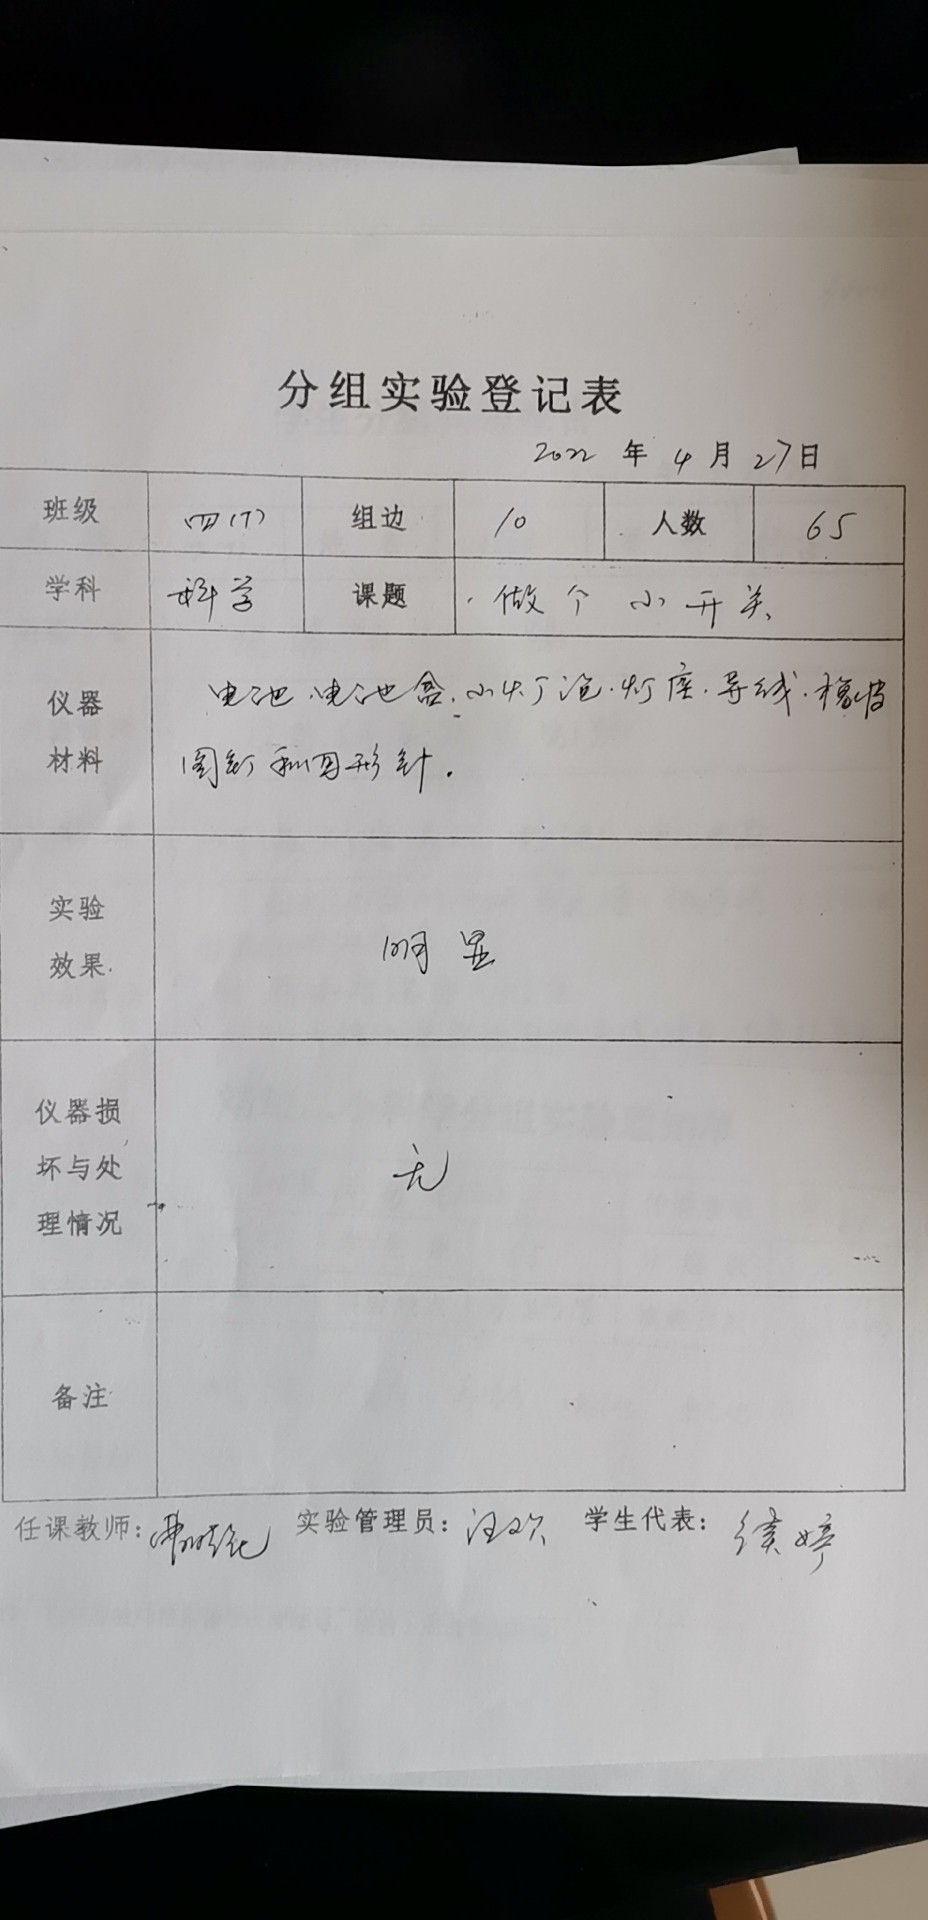 分组实验登记表
2022 年 4 月 27日
班级 四(7) 组边 10 人数 65
学科 科学 课题 做个小开关
仪器材料 电池.电池盒.小灯泡.灯座.导线.橡皮
图钉和回形针.
实验效果 明显
仪器损坏与处理情况 无
备注
任课教师: 实验管理员: 汪欢 学生代表: 婷